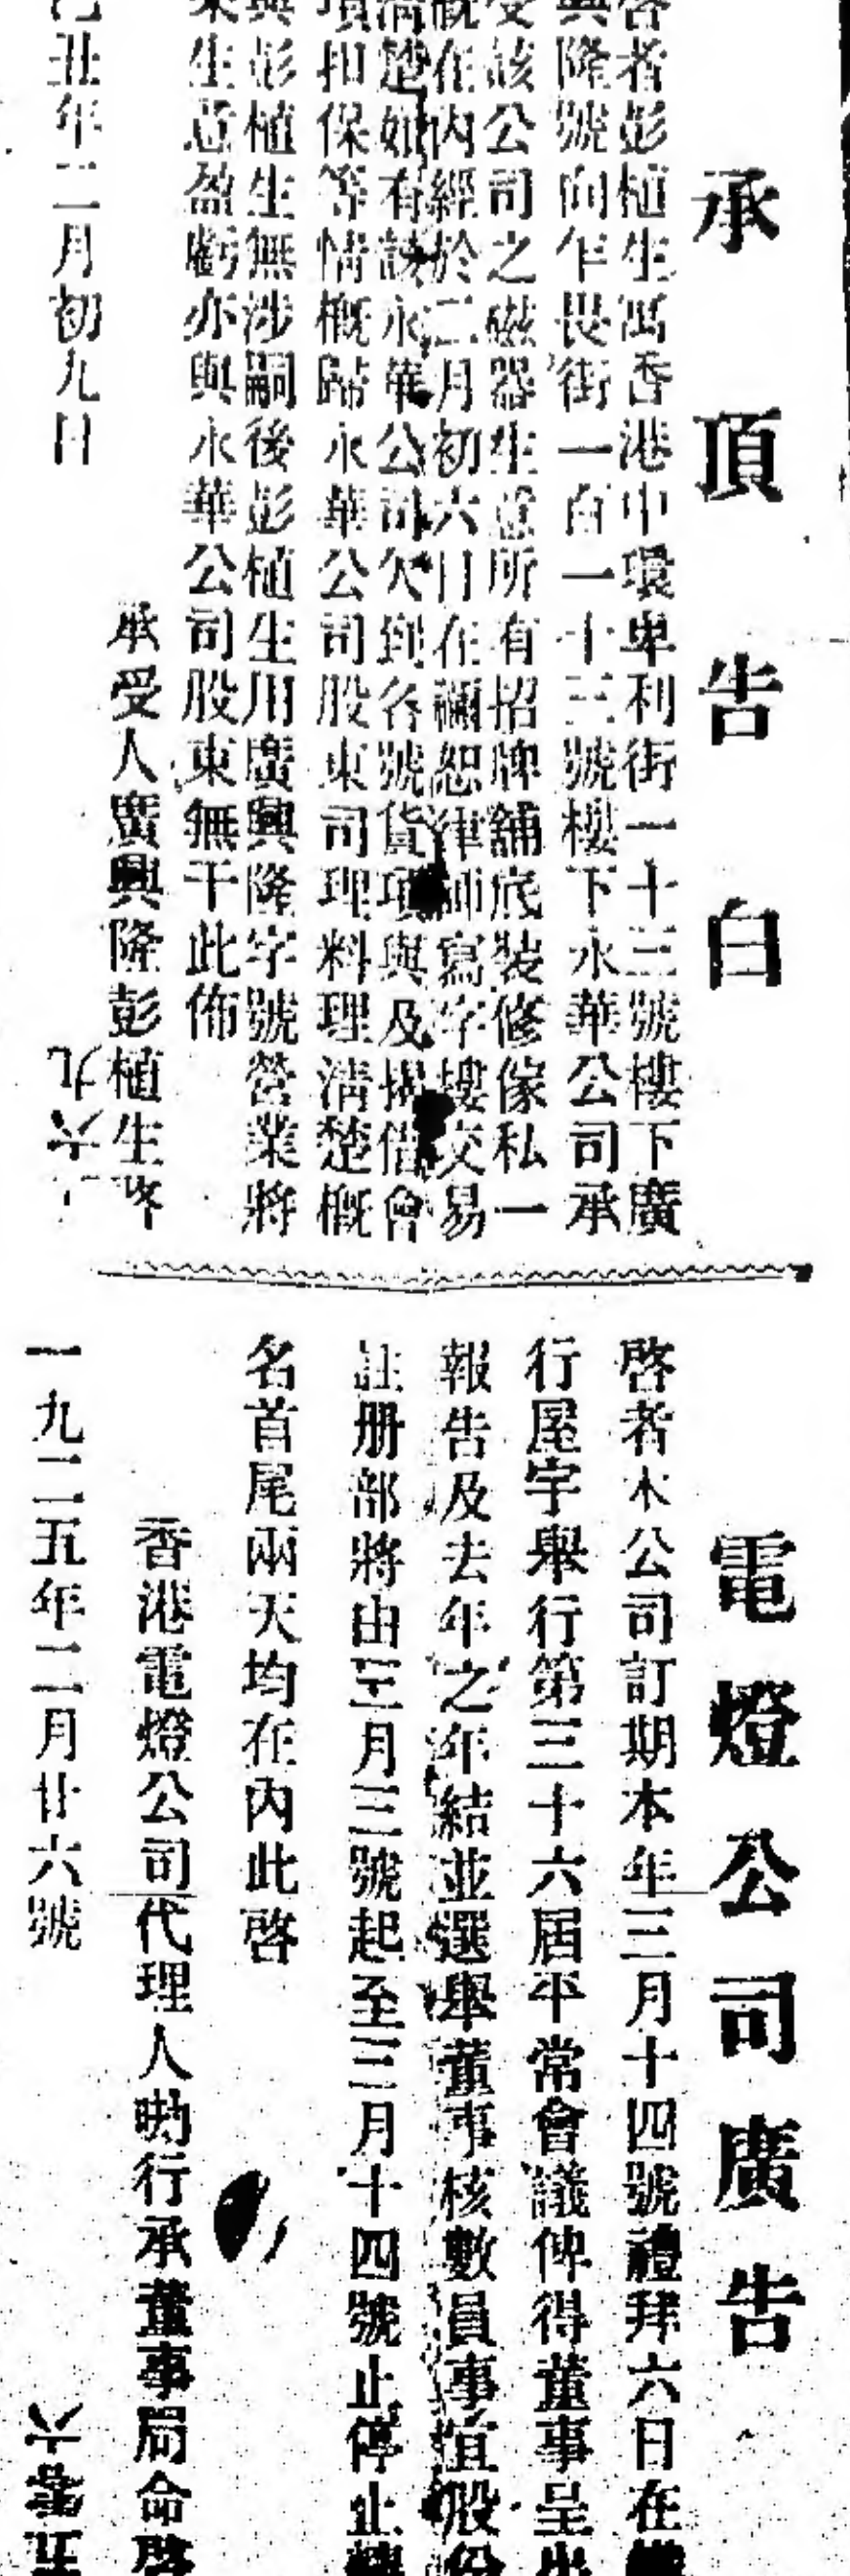 承頂告白
啓者彭植生寓香港中環卑利街一十三號樓下廣
興隆號向乍畏街一百一十三號樓下永華公司承
受該公司之磁器生意所有招牌舖底裝修傢私一
概在內經於二月初六日在禰恕律師寫字樓交易
清楚如有該永華公司欠到各號貨項與及揭借會
項扣保等情概歸永華公司股東司理料理清楚概
與彭植生無涉嗣後彭植生用廣興隆字號營業將
來生意盈虧亦與永華公司股東無干此佈
承受人廣興隆彭植生啓
丑年二月初九日
九六
電燈公司廣告
啓者本公司訂期本年三月十四號禮拜六日在
行屋宇舉行第三十六屆平常會議俾得董事呈出
報告及去年之年結並選舉董事核數員事宜股份
註册部將由三月三號起至三月十四號止停止轉
名首尾兩天均在內此啓
香港電燈公司代理人行承董事局命啓
一九二五年二月廿六號
六